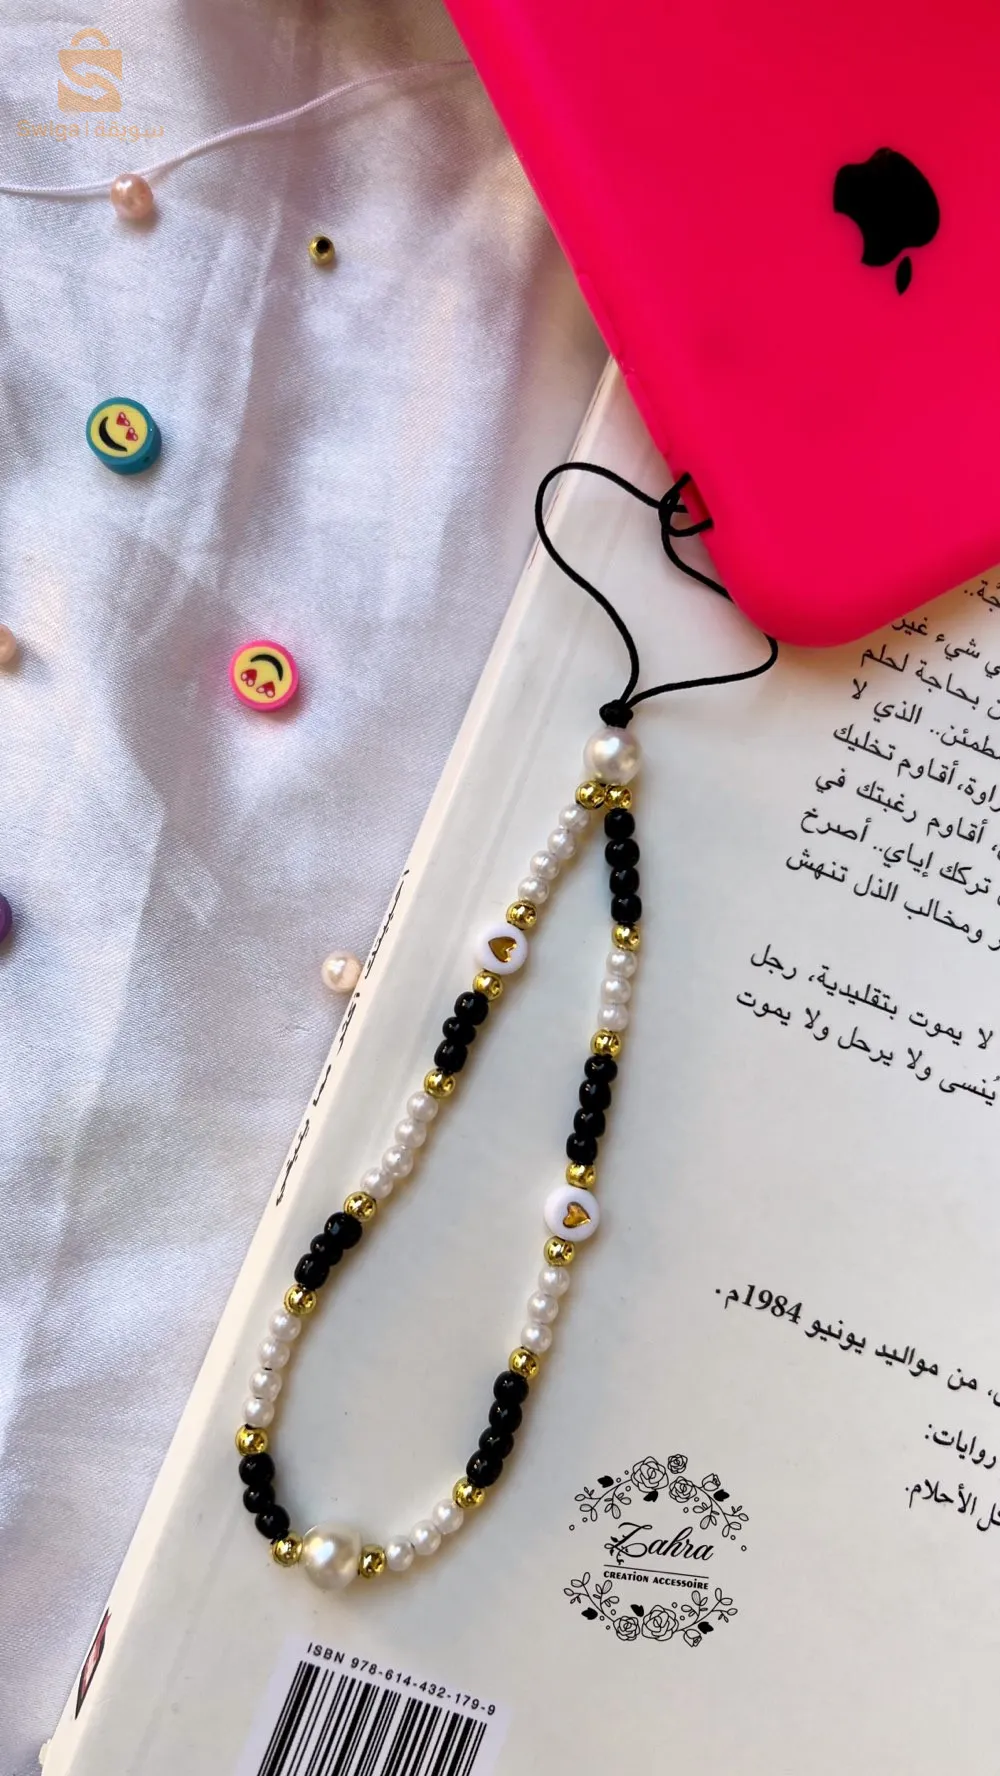 Swiga | سويقة
جّة..
ي شيء غير
ن بحاجة لحلم
الذي لا
أقاوم تخليك
أقاوم رغبتك في
تركك إياي.. أصرخ
ومخالب الذل تنهش
لا يموت بتقليدية، رجل
يُنسى ولا يرحل ولا يموت
من مواليد يونيو 1984م.
روايات:
الأحلام.
Zahra
CREATION ACCESSOIRE
ISBN 978-614-432-179-9